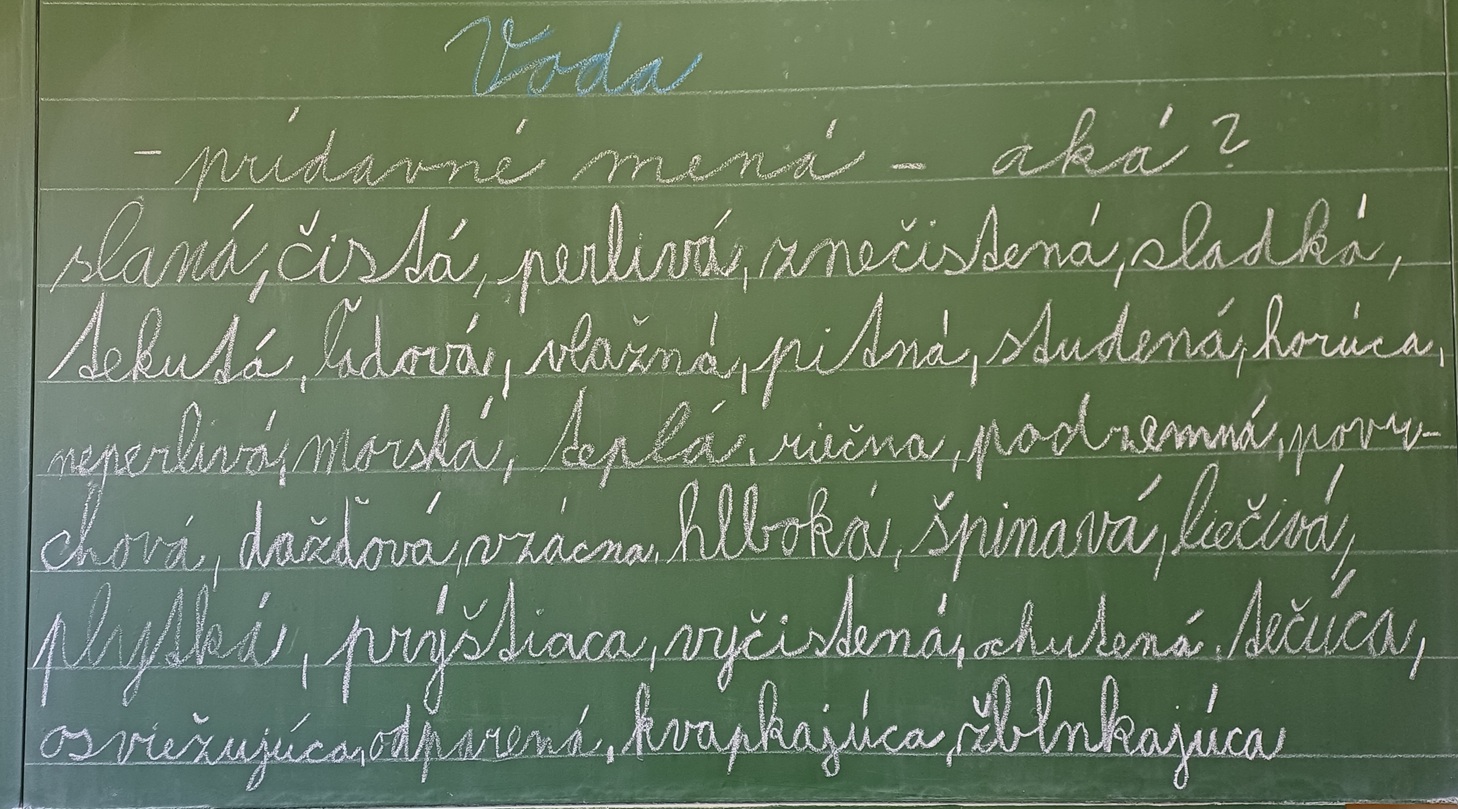 Voda
- prídavné mená - aká?
slaná, čistá, perlivá, znečistená, sladká,
tekutá, ľadová, vlažná, pitná, studená, horúca,
neperlivá, morská, teplá, riečna, podzemná, povr-
chová, dažďová, vzácna, hlboká, špinavá, liečivá,
plytká, prýštiaca, vyčistená, chutená, tečúca,
osviežujúca, odparená, kvapkajúca, žblnkajúca